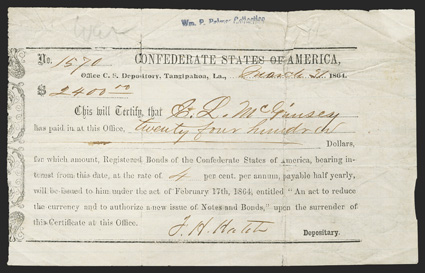 Wm. P. Palmer Collection
No. 1570 CONFEDERATE STATES OF AMERICA,
Office C. S. Depository, Tangipahoa, La., March 1864.
$ 2400 00
This will Certify, that L. McGimsey
has paid in at this Office, twenty four hundred
Dollars,
for which amount, Registered Bonds of the Confederate States of America, bearing in-
terest from this date, at the rate of 4 per cent. per annum, payable half yearly,
will be issued to him under the act of February 17th, 1864, entitled "An act to reduce
the currency and to authorize a new issue of Notes and Bonds," upon the surrender of
this Certificate at this Office.
F. H. Hatch Depositary.